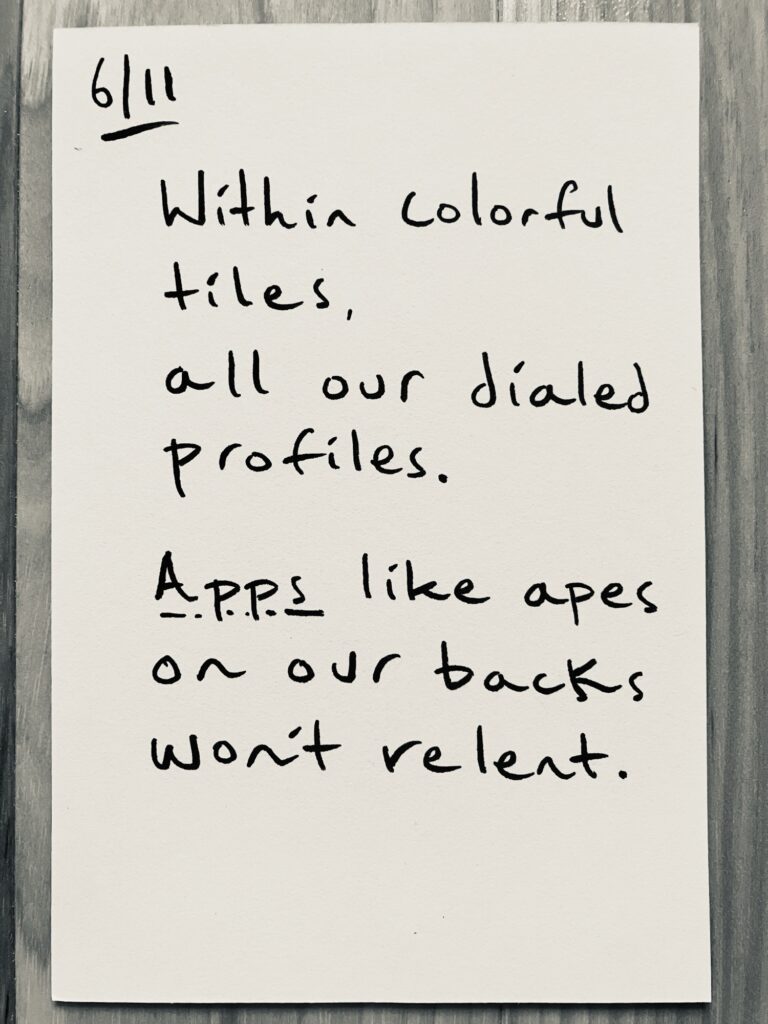 6/11
Within colorful
tiles,
all our dialed
profiles.
Apps like apes
on our backs
won't relent.